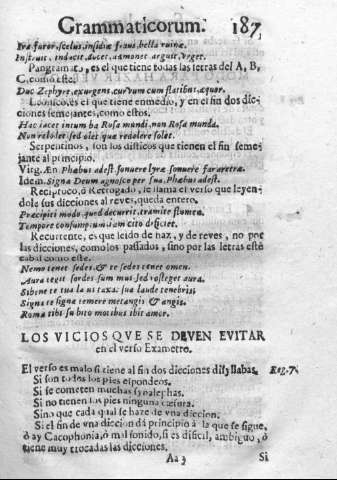 Grammaticorum. 187
Iræ furor, scelus, insidiæ fraus, bella ruinæ.
Instruit, inducit, ducet, admonet arguit, vrget.
Pangramato, es el que tiene todas las letras del A, B,
C, como este.
Duc Zephyre, exurgens curvum cum flatibus, æquor.
Leonico, es el que tiene en medio, y en el fin dos dic-
ciones semejantes, como estos.
Hac iacet intum ba Rosa mundi, non Rosa munda
Non redolet sed olet quæ redolere solet.
Serpentinos, son los disticos que tienen el fin seme-
jante al principio.
Virg. Æn Phæbus adest sonuere lyræ sonuere fararetræ.
Idem. Signa Deum agnosco per sua. Phæbus adest.
Reciproco, ò Retrogado, se llama el verso que leyen-
dole sus dicciones al reves, queda entero.
Præcipiti modo quod decurrit, tramite flumen
Tempore consumptum iam cito deficiet.
Recurrente, es que leido de haz, y de reves, no por
las dicciones, como los passados, sino por las letras està
cabal como este.
Nemo tenet sedes, & te sedes tenet omen.
Aura teget sordes sum mus sed ros teget aura.
Si bene te tua la us taxa. sua laude tenebris,
Signa te signa temere me tangis & angis.
Roma tibi su bito motibus ibit amor.
LOS VICIOS QVE SE DEVEN EVITAR
en el verso Exametro.
El verso es malo si tiene al fin dos dicciones disyllabas. Reg. 7.
Si son todos los pies espondeos.
Si se cometen muchas synalephas.
Si no tienen los pies ninguna cæsura.
Si no que cada qual se haze de vna diccion.
Si el fin de vna diccion dà principio à la que se sigue,
ò ay Cacophonia, ò mal sonido, si es dificil, ambiguo, ò
tiene muy trocadas las dicciones.
Aa 3 Si